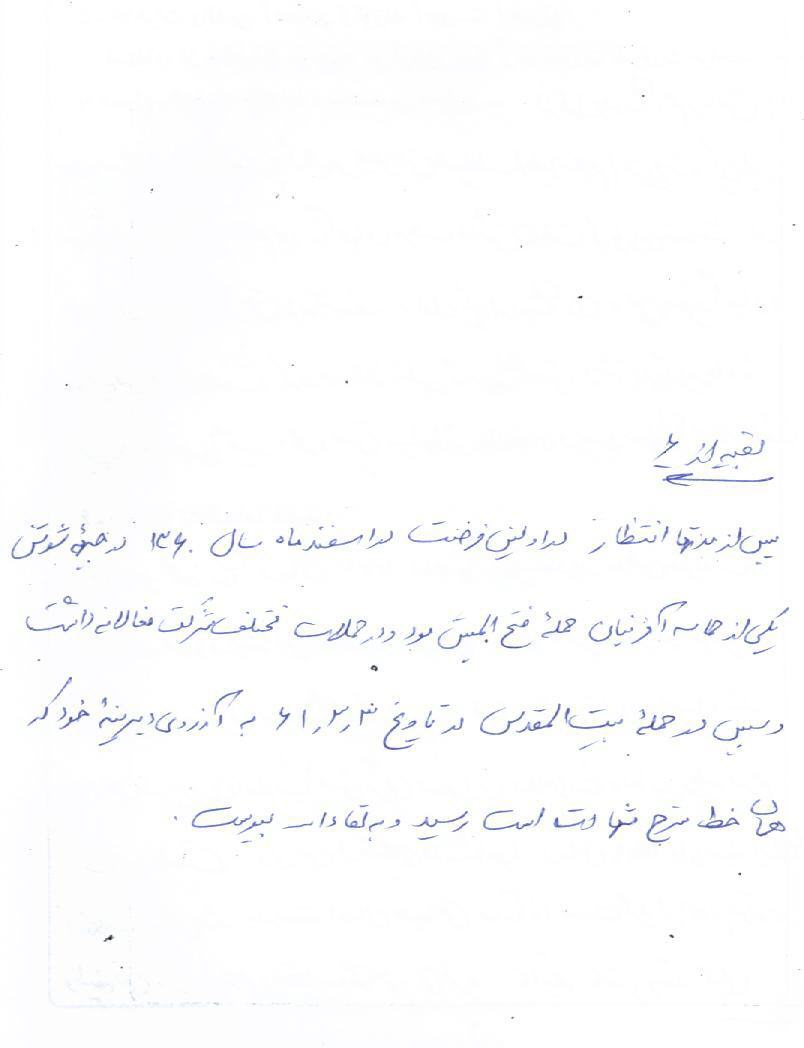 بقیه از ۶
پس از مدتها انتظار در اولین فرصت در اسفند ماه سال ۱۳۶۰ در جبهۀ شوش
یکی از حماسه آفرینان حملۀ فتح المبین بود و در حملات مختلف شرکت فعالانه داشت
و سپس در حملۀ بیت المقدس در تاریخ ۶۱٫۲٫۳ به آرزوی دیرینۀ خود که
همان خط سرخ شهادت است رسید و به لقاءالله پیوست .